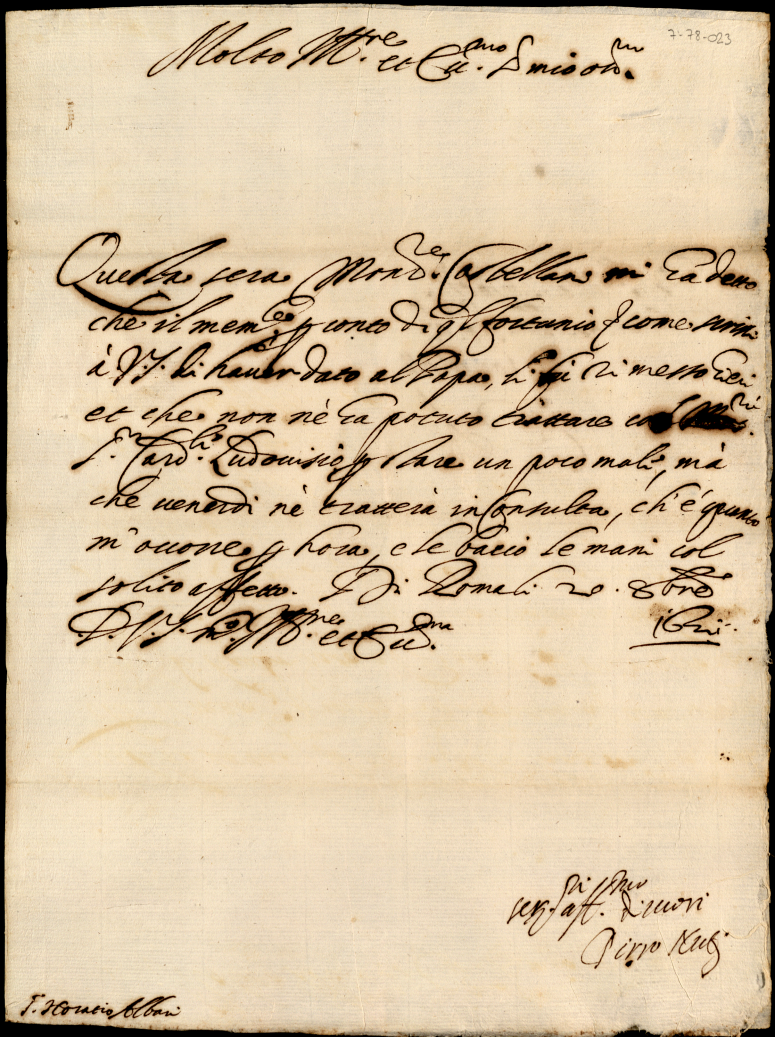 7-78-023
Molto Ill.tre et Ecc.mo S.r mio oss.mo
Questa sera Mons.re Castellani mi hà detto
che il mem.le p conto di q.l fortunio che come scrissi
à V.S. di haver dato al Papa, li fù rimesso hieri
et che non nè hà potuto trattare col
S.r Card.le Ludovisio p stare un poco male, mà
che venerdi nè tratterà in Consulta, ch'è quanto
m'occorre p hora, e le bacio le mani col
solito affetto. Di Roma li 20 8bre
D. V. S. m.o Ill.tre et Ecc.ma 1621.
ser.re aff.mo di cuore
Pirro
S. Horatio Albani